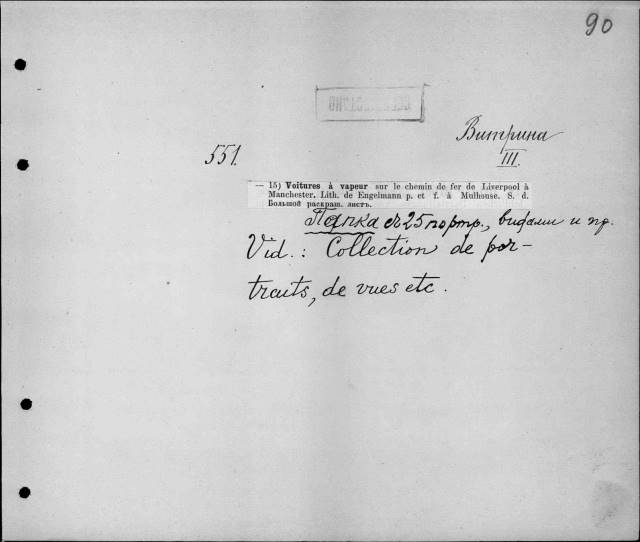 90
Витрина
III.
551.
— 15) Voitures à vapeur sur le chemin de fer de Liverpool à
Manchester. Lith. de Engelmann p. et f. à Mulhouse. S. d.
Большой раскраш. листъ.
Папка съ 25 портр., видами и пр.
Vid.: Collection de por-
traits, de vues etc.